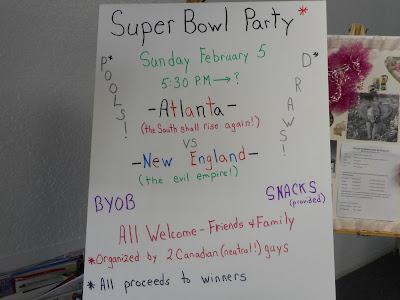 Super Bowl Party*
Sunday February 5
5:30 PM → ?
POOLS!*
DRAWS!*
-Atlanta-
(the South shall rise again!)
VS
-New England-
(the evil empire!)
BYOB
SNACKS
(provided)
All Welcome - Friends & Family
*Organized by 2 Canadian (neutral!) guys
*All proceeds to winners